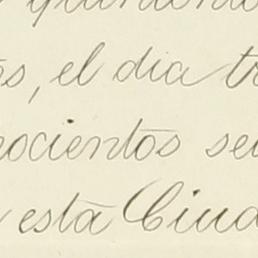 s, el dia tr
ocientos se
esta Ciud